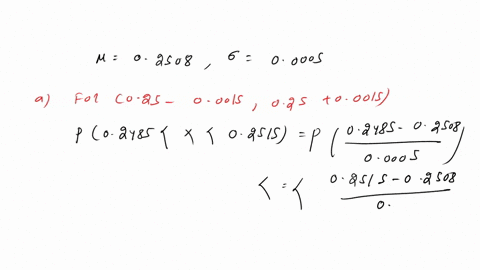 μ = 0.2508 , σ = 0.0005
a) For (0.25 - 0.0015, 0.25 + 0.0015)
P(0.2485 < x < 0.2515) = P ( 0.2485 - 0.2508 / 0.0005 )
< z < 0.2515 - 0.2508 / 0.